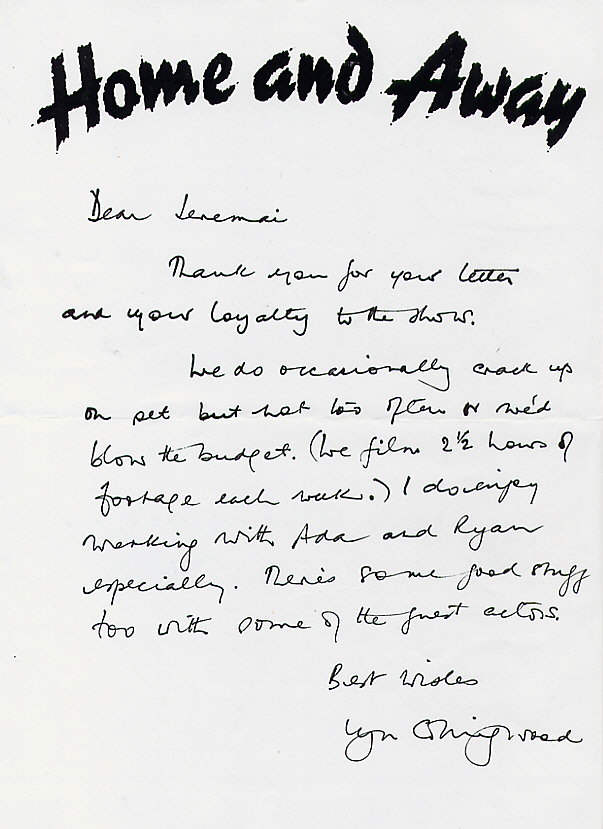 Home and Away
Dear Jeremai
Thank you for your letter
and your loyalty to the show.
We do occasionally crack up
on set but not too often or we'd
blow the budget. (We film 2½ hours of
footage each week.) I do enjoy
working with Ada and Ryan
especially. There's some good stuff
too with some of the guest actors.
Best wishes
Lyn Collingwood